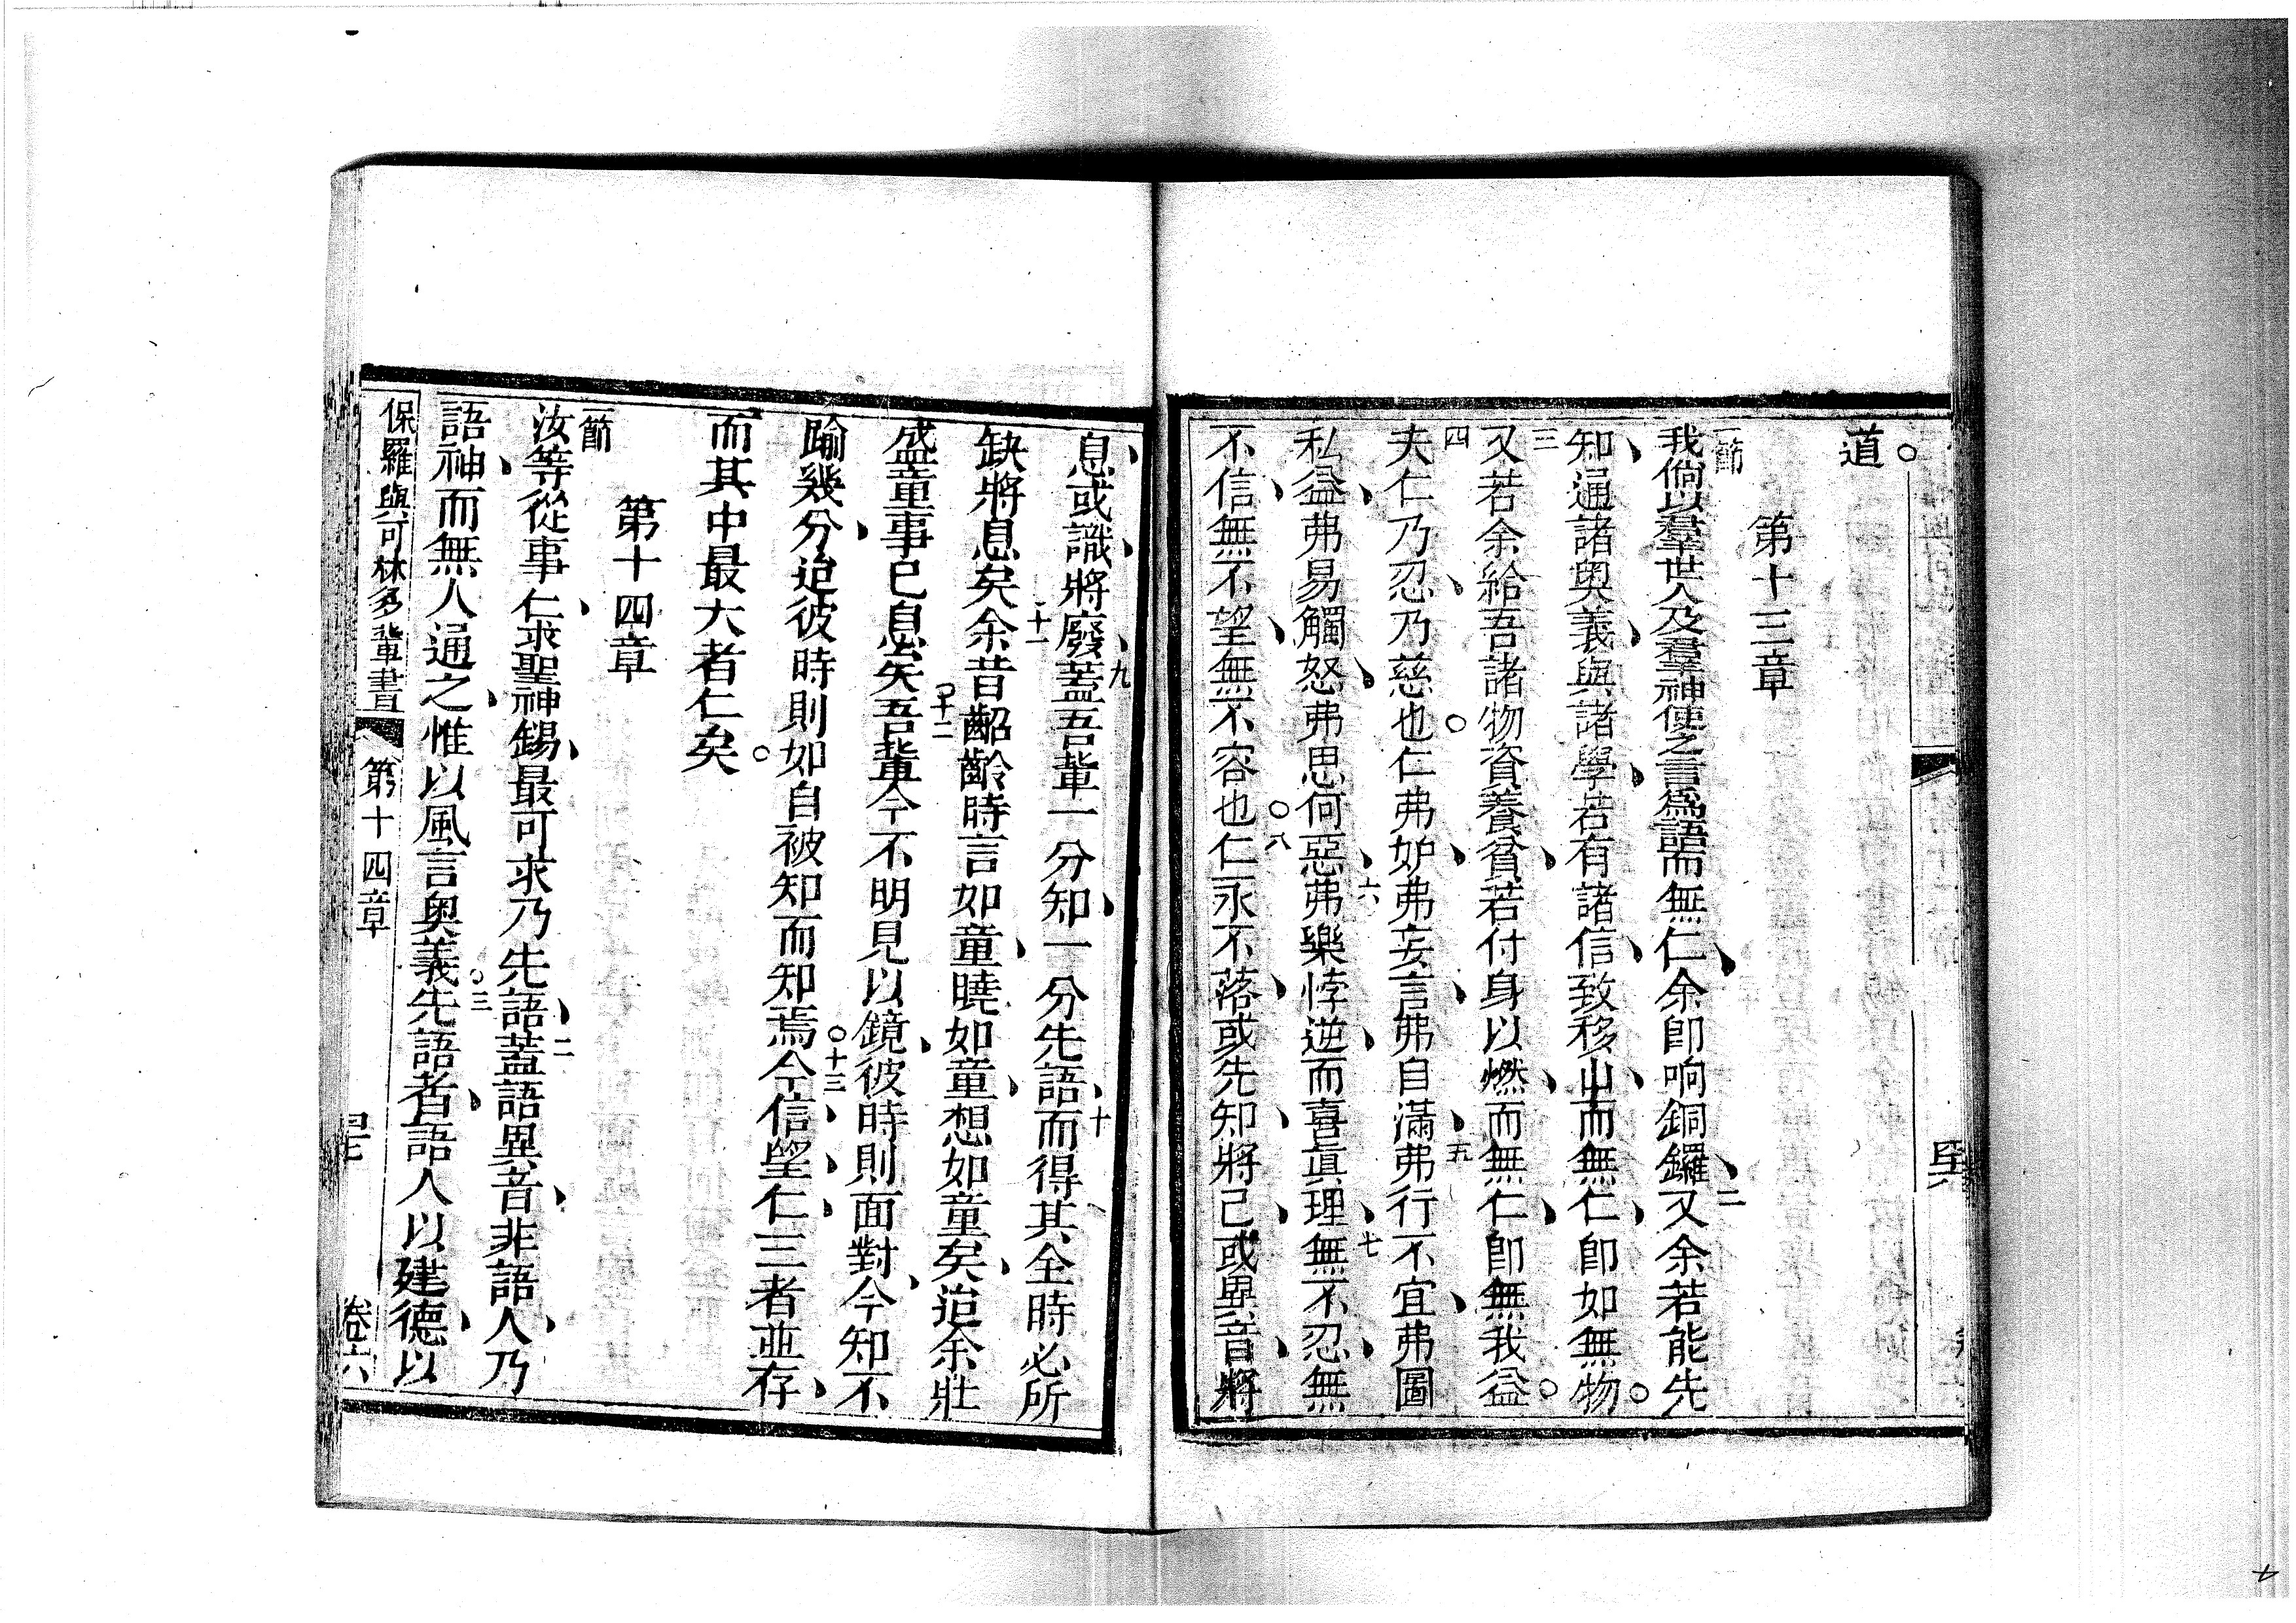 道。
第十三章
一節我倘以羣世人及羣神使之言爲語而無仁、余即响銅鑼、二又余若能先
知、通諸奧義、與諸學、若有諸信、致移山、而無仁、即如無物。
三又若余給吾諸物資養貧、若付身以燃、而無仁、即無我益。
四夫仁乃忍、乃慈也。仁弗妒、弗妄言、弗自滿、五弗行不宜、弗圖
私益、弗易觸怒、弗思何惡、六弗樂悖逆、而喜眞理、七無不忍、無
不信、無不望、無不容也。八仁永不落、或先知、將已、或異音、將
息、或識、將廢、九蓋吾輩一分知、一分先語、十而得其全時必所
缺將息矣十一余昔齠齡時言如童、曉如童、想如童矣、迨余壯
盛童事已息矣。十二吾輩今不明見以鏡、彼時則面對、今知不
踰幾分、迨彼時則如自被知而知焉。十三今信、望、仁、三者並存、
而其中最大者仁矣。
第十四章
節汝等從事仁、求聖神錫、最可求乃先語、二蓋語異音、非語人、乃
語神、而無人通之、惟以風言奧義。三先語者、語人以建德、以
保羅與可林多輩書 第十四章
卷六